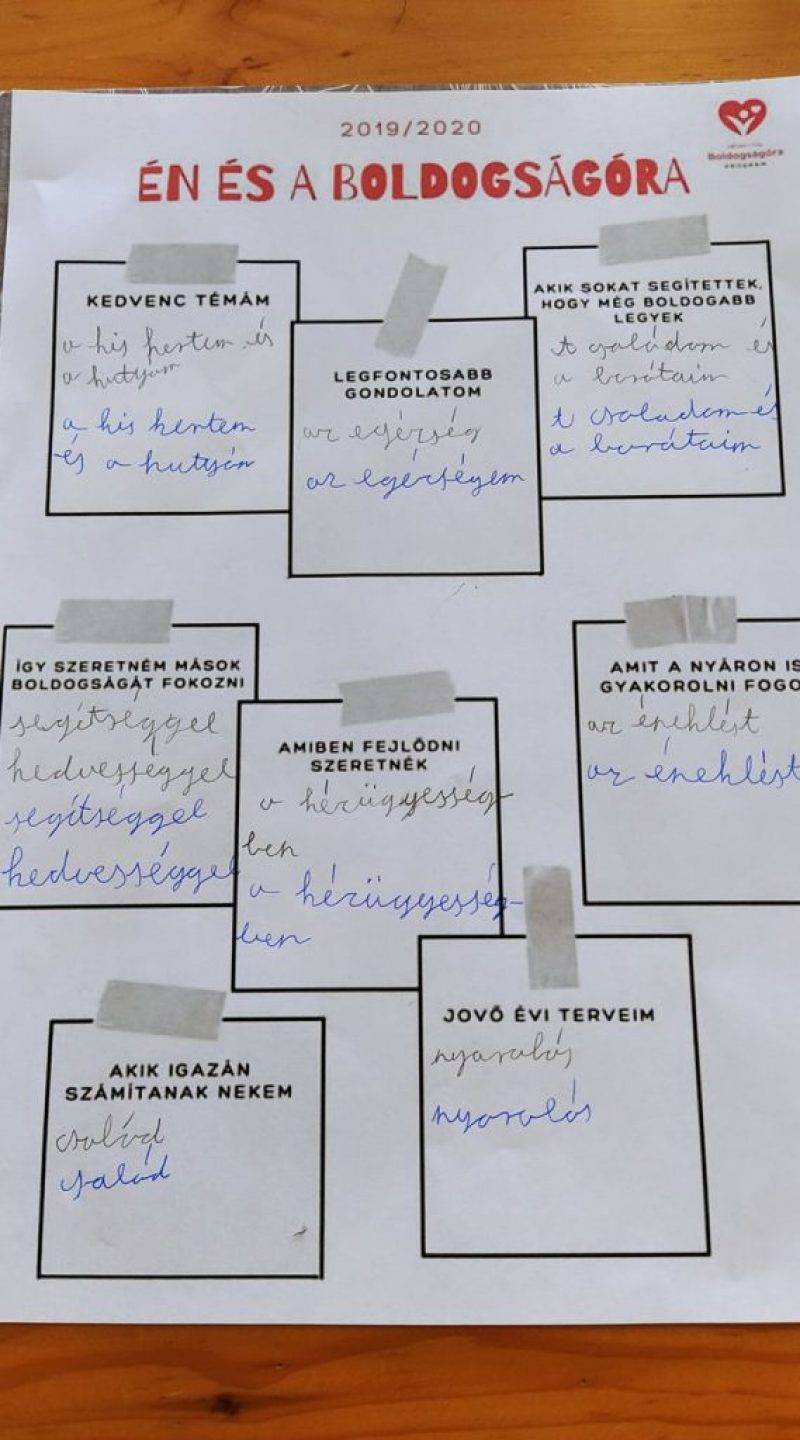 2019/2020
ÉN ÉS A BOLDOGSÁGÓRA
Boldogságóra
PROGRAM
KEDVENC TÉMÁM
a kis kertem és
a kutyám
a kis kertem
és a kutyám
LEGFONTOSABB
GONDOLATOM
az egérség
az egérségem
AKIK SOKAT SEGÍTETTEK,
HOGY MÉG BOLDOGABB
LEGYEK
A családom és
a barátaim
A családom és
a barátaim
ÍGY SZERETNÉM MÁSOK
BOLDOGSÁGÁT FOKOZNI
segítséggel
kedvességgel
segítséggel
kedvességgel
AMIBEN FEJLŐDNI
SZERETNÉK
a kézügyesség-
ben
a kézügyesség-
ben
AMIT A NYÁRON IS
GYAKOROLNI FOGO
az éneklést
az éneklést
AKIK IGAZÁN
SZÁMÍTANAK NEKEM
család
család
JÖVŐ ÉVI TERVEIM
nyaralás
nyaralás